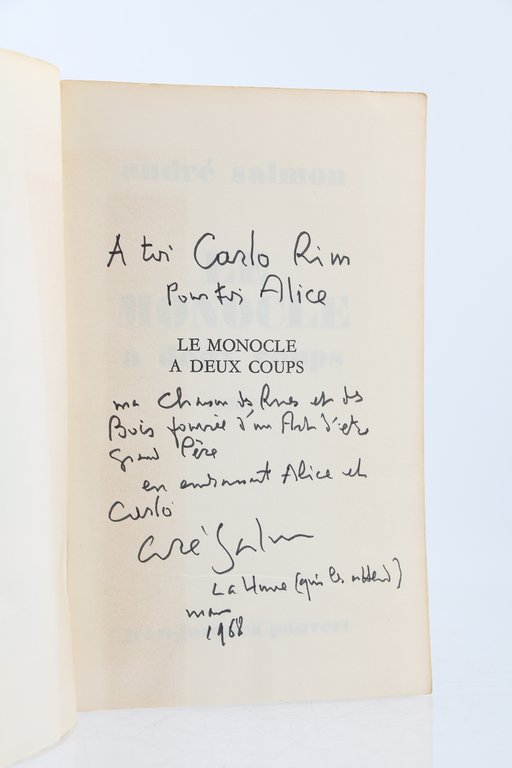 A toi Carlo Rim
pour toi Alice
LE MONOCLE
A DEUX COUPS
ma Chanson des Rues et des
Bois fourrée d'un Art d'être
Grand Père
en embrassant Alice et
Carlo
André Salmon
La Hune (qui les attend)
mars
1968
andré salmon
LE
MONOCLE
a deux coups
pauvert